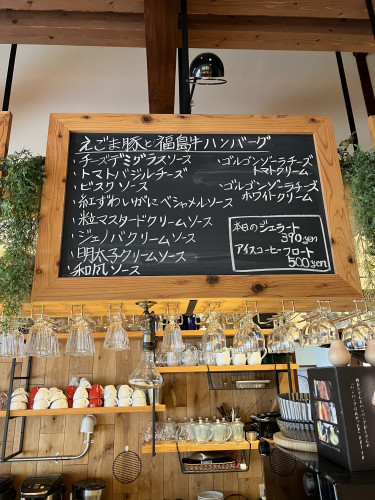 えごま豚と福島牛ハンバーグ
・チーズデミグラスソース
・トマトバジルチーズ
・ビスクソース
・紅ずわいがにベシャメルソース
・粒マスタードクリームソース
・ジェノバクリームソース
・明太子クリームソース
・和風ソース
・ゴルゴンゾーラチーズ
トマトクリーム
・ゴルゴンゾーラチーズ
ホワイトクリーム
本日のジェラート
390yen
アイスコーヒーフロート
500yen